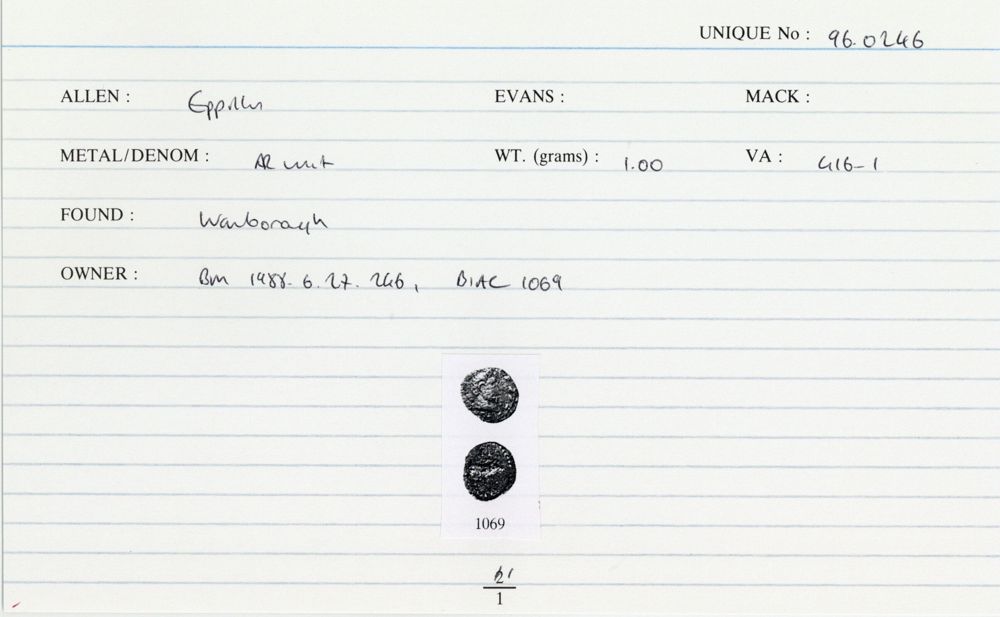 UNIQUE No : 96.0246
ALLEN : Eppillus EVANS : MACK :
METAL/DENOM : AR unit WT. (grams) : 1.00 VA : 416-1
FOUND : Wanborough
OWNER : BM 1988. 6. 27. 246, BIAC 1069
1069
1